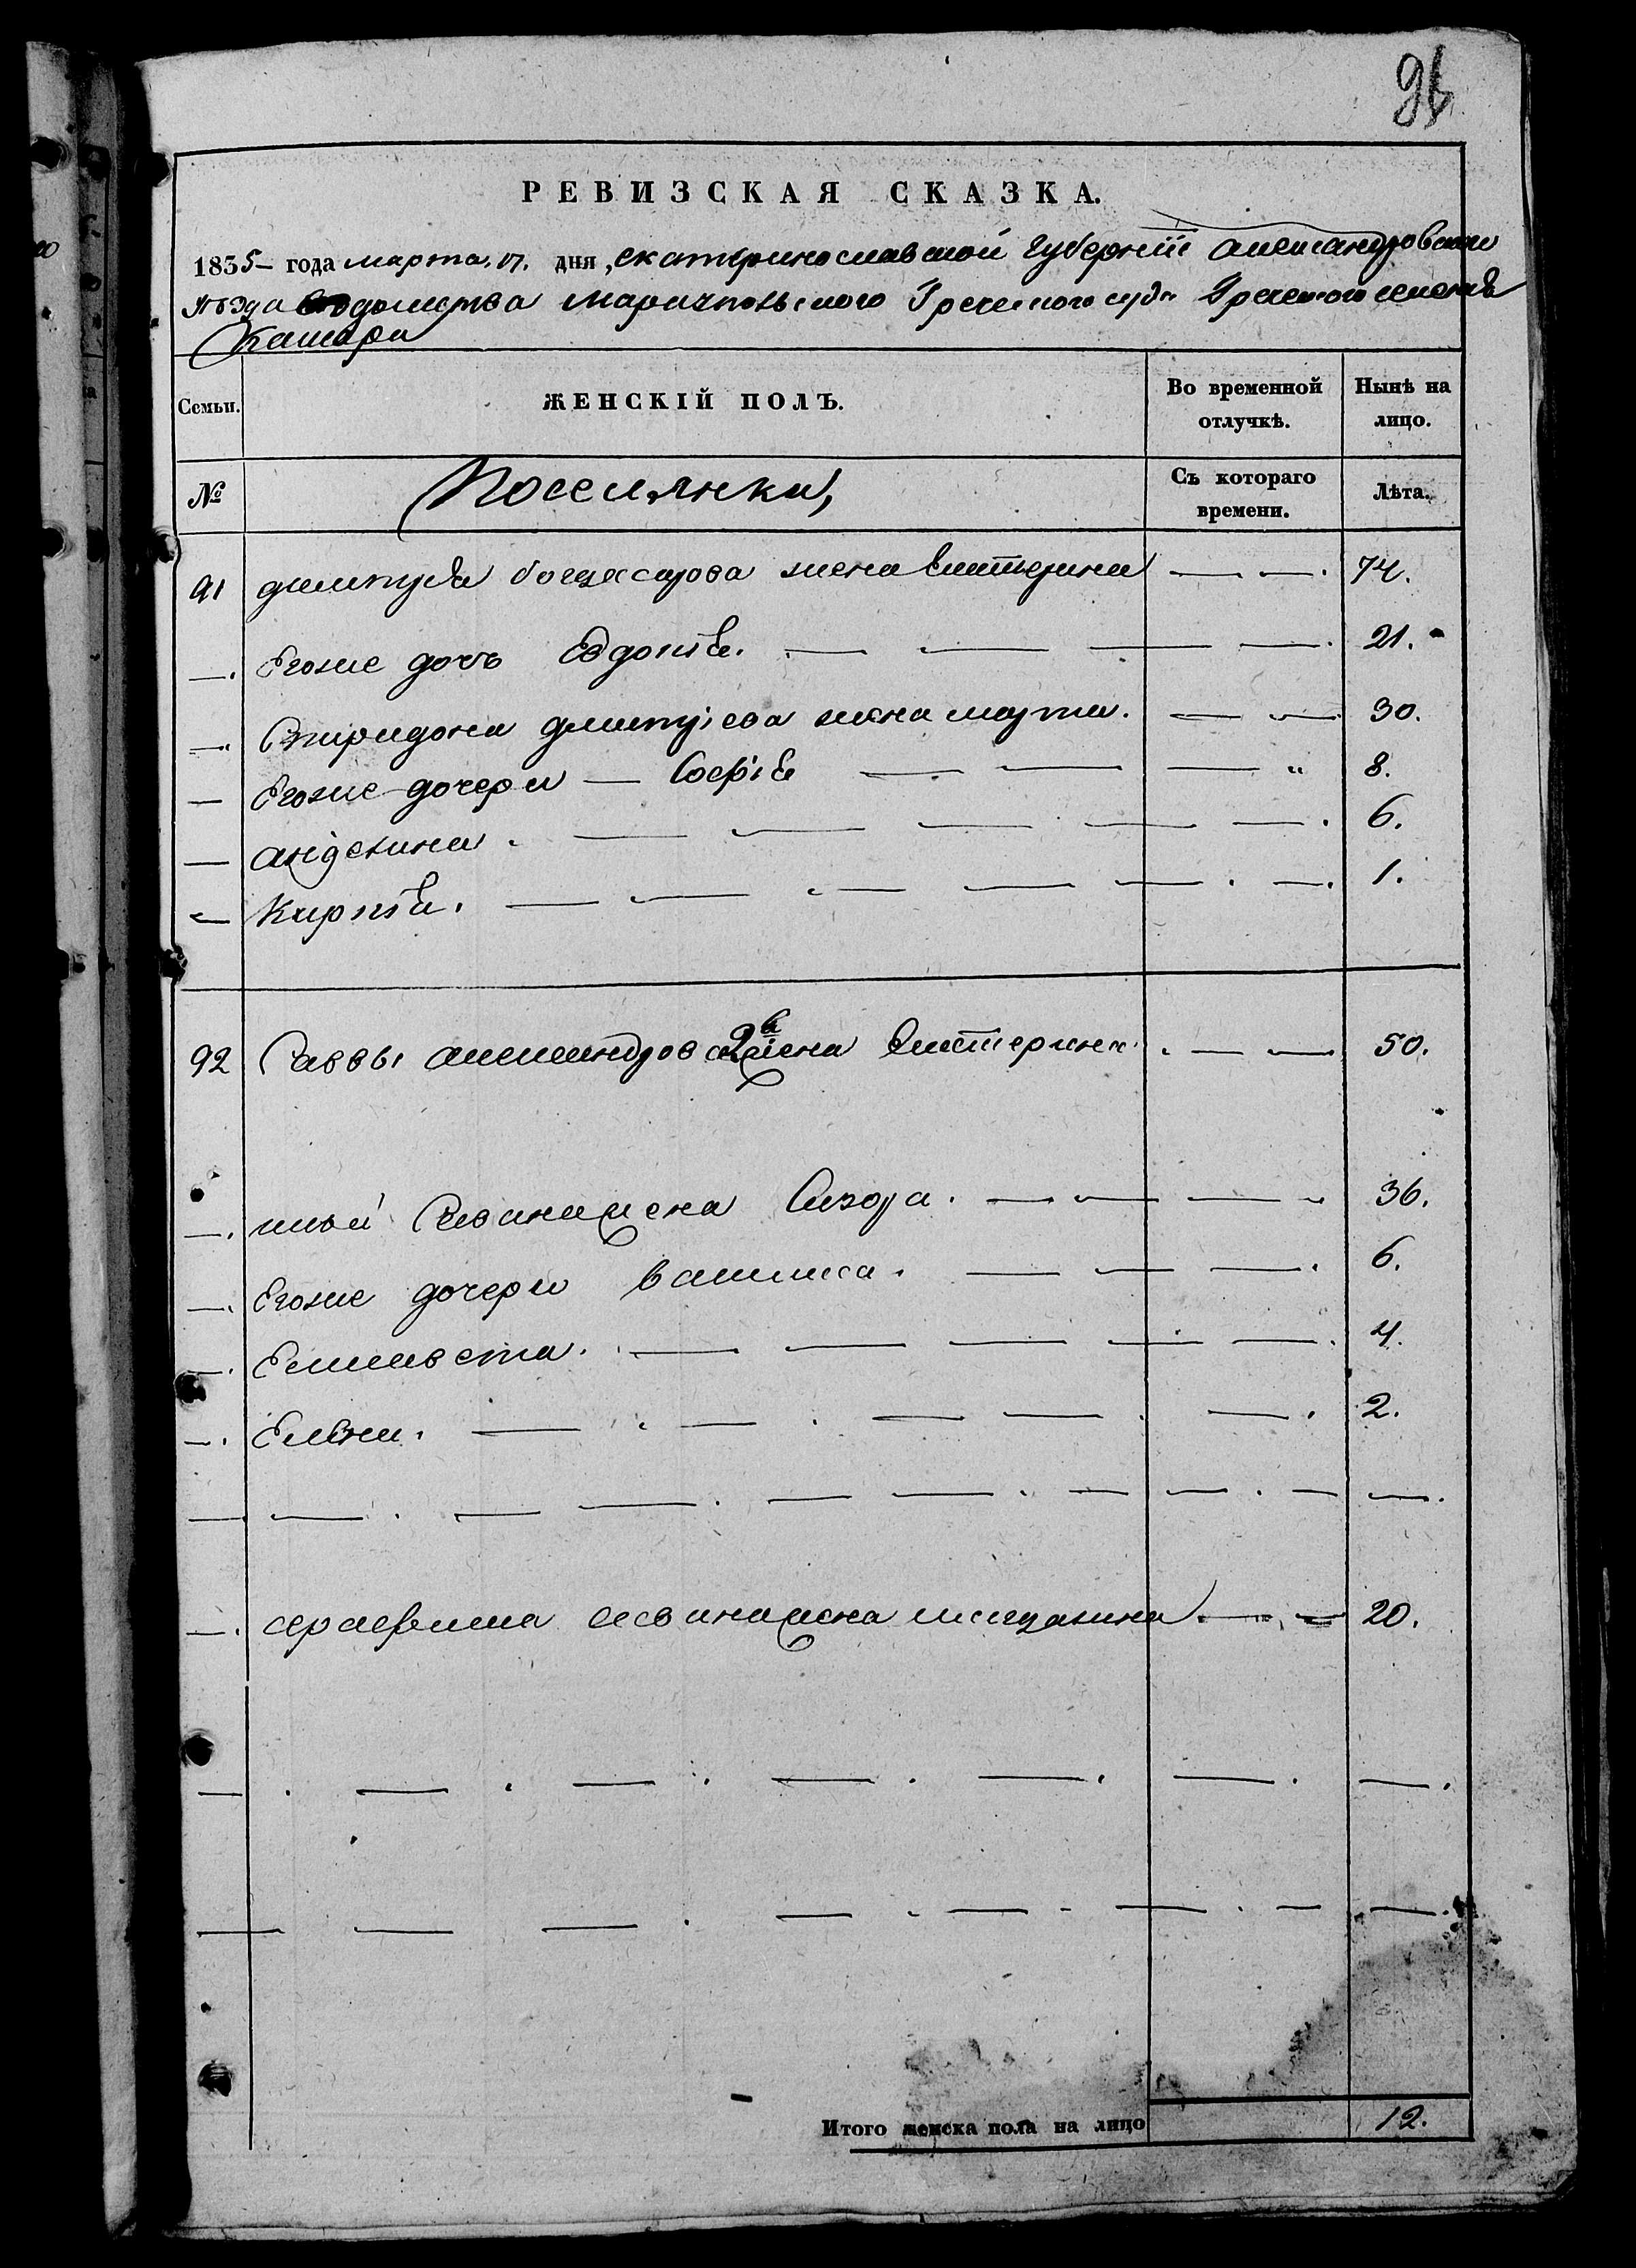 96
РЕВИЗСКАЯ СКАЗКА.
1835 года марта 17. дня, екатеринославской Губерніи александровскаго
уѣзда вѣдомства Мариупольского Греческого суда Греческого селенія
Камара
Семьи.
ЖЕНСКІЙ ПОЛЪ.
Во временной отлучкѣ.
Нынѣ на лицо.
№
Поселянки,
Съ котораго времени.
Лѣта.
91 дмитрія жена екатерина 74.
Егоже дочь Евдокія. 21.
Спиридона дмитріева жена марта. 30.
Егоже дочери Софія 8.
6.
1.
92 Саввы александрова 2я жена екатерина 50.
Савина жена 36.
Егоже дочери василиса. 6.
Елисавета. 4.
Елена. 2.
савина жена 20.
Итого женска пола на лицо 12.